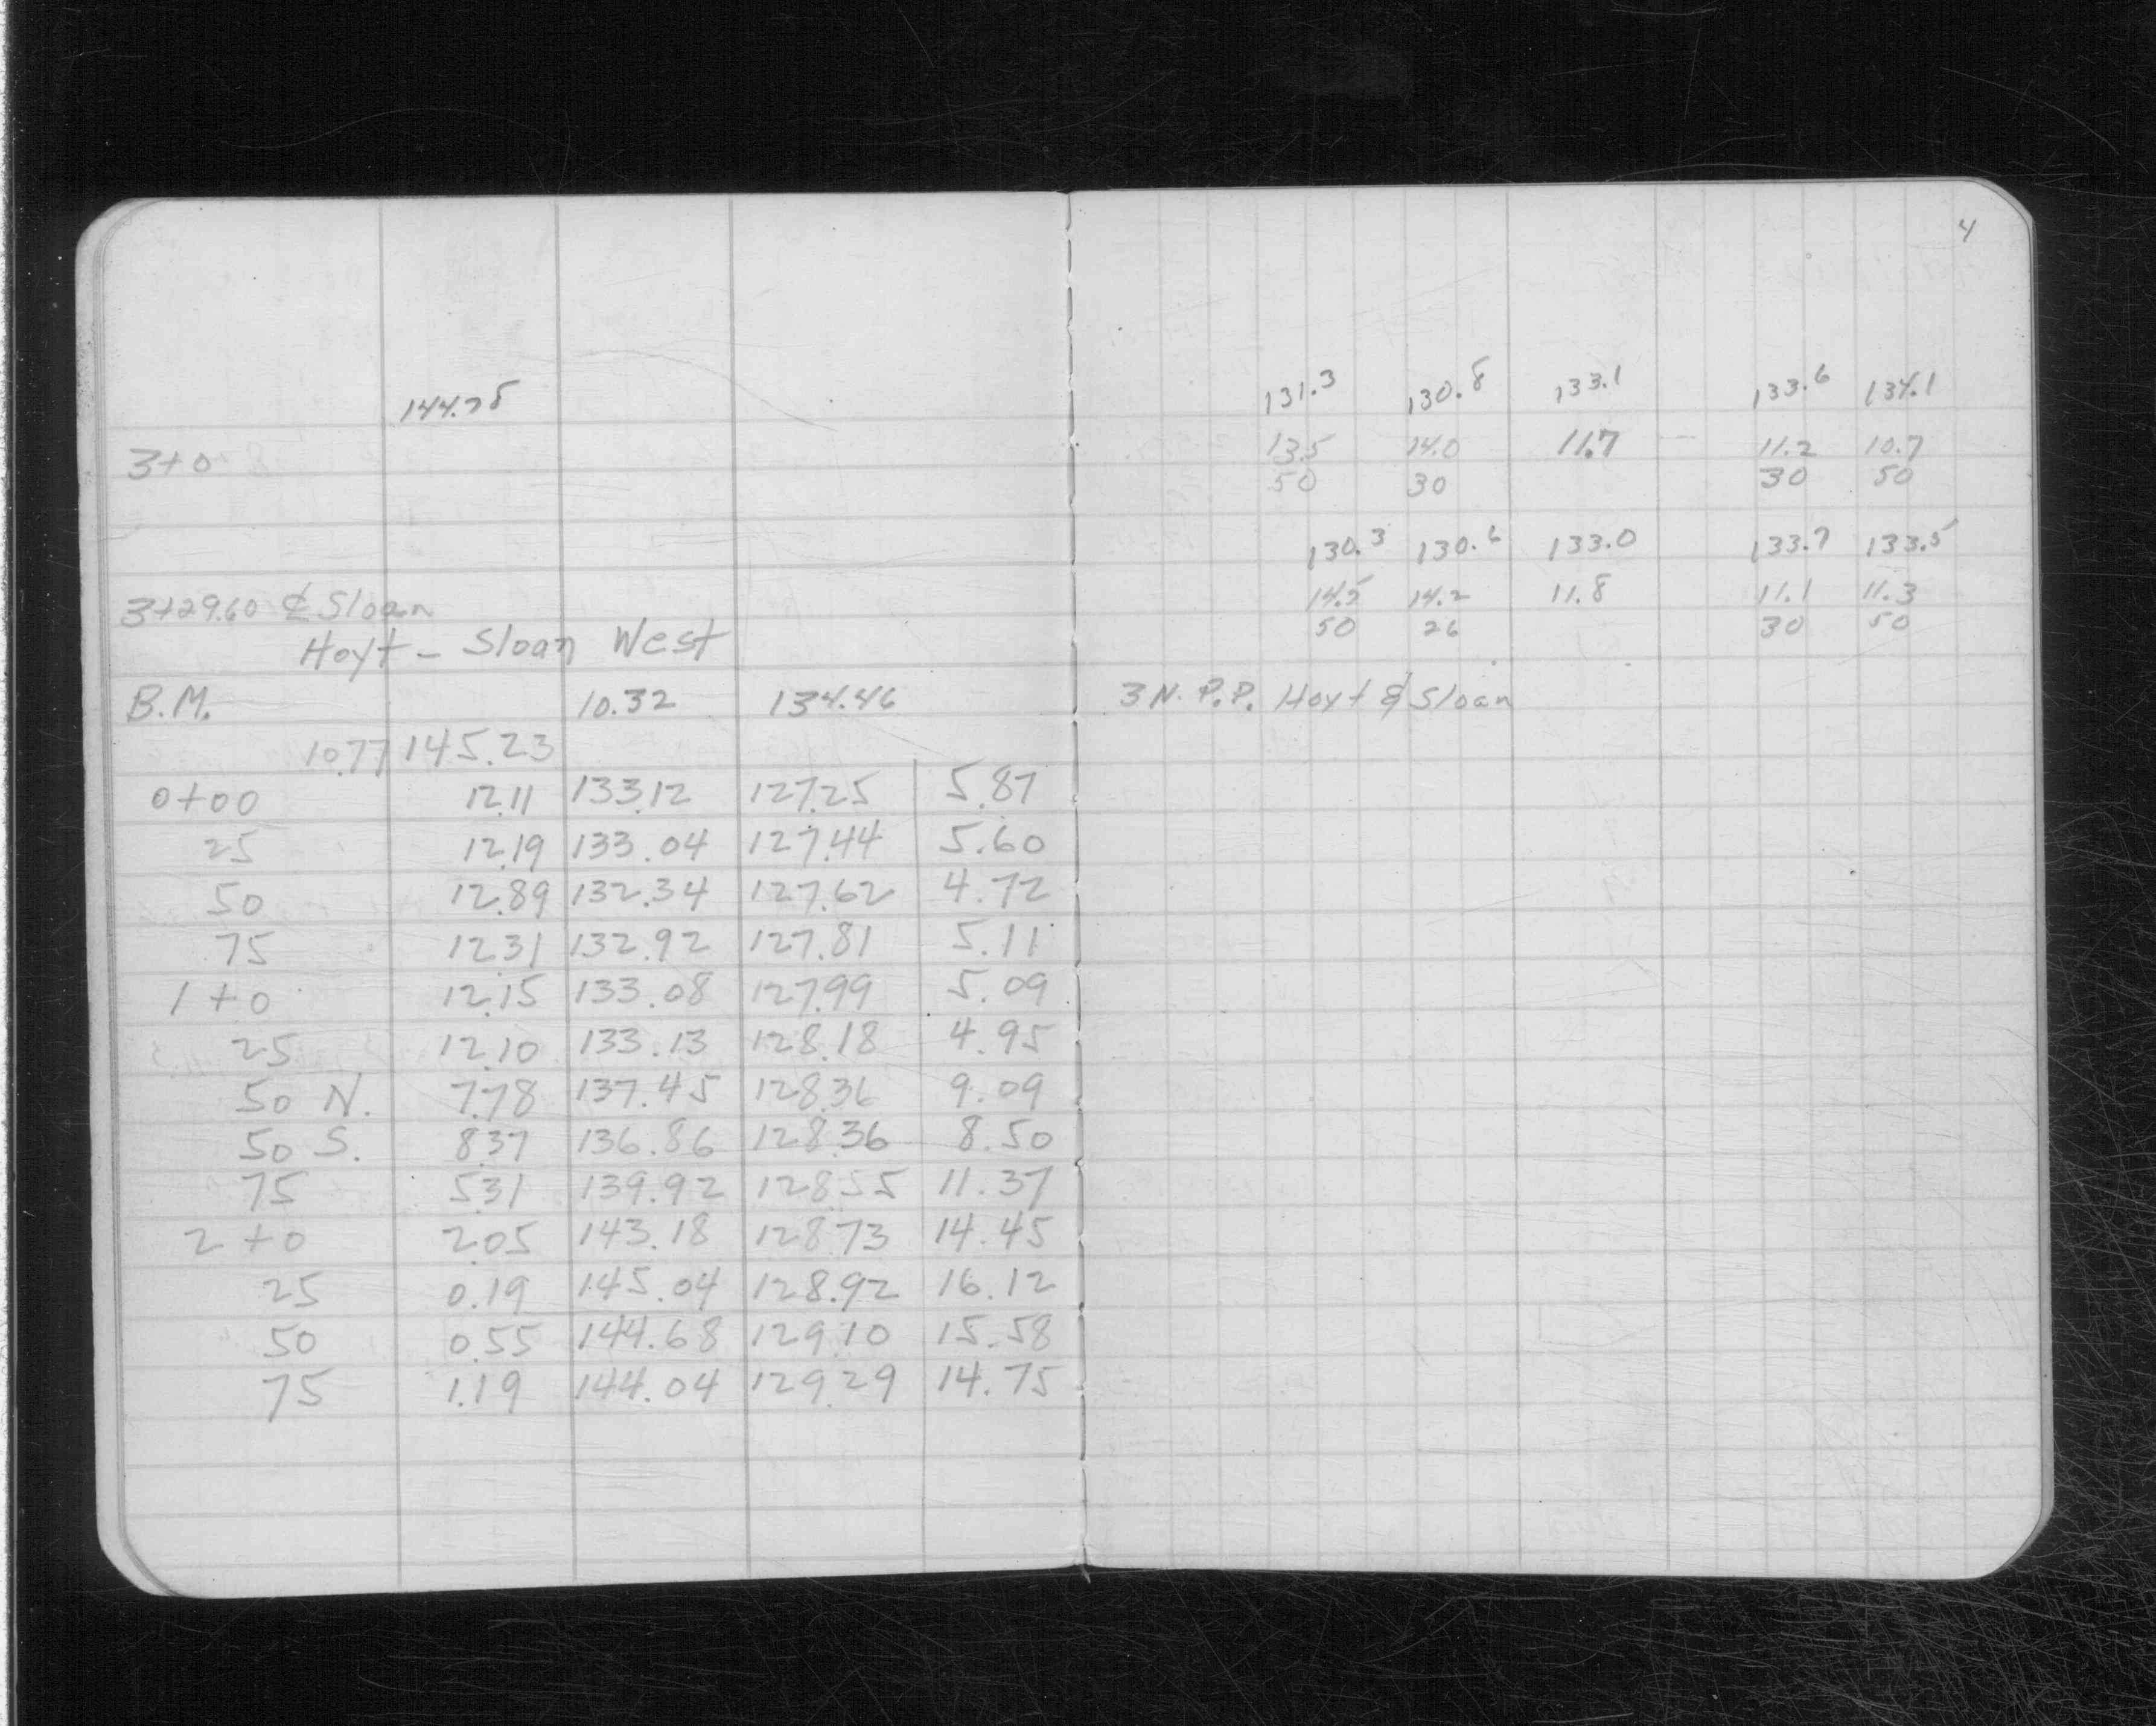 4
144.78
131.3 130.8 133.1 133.6 134.1
3+0 13.5 14.0 11.7 11.2 10.7
50 30 30 50
130.3 130.6 133.0 133.7 133.5
3+29.60 ₵ Sloan 14.5 14.2 11.8 11.1 11.3
50 26 30 50
Hoyt - Sloan West
B.M. 10.32 134.46 3 N. P.P. Hoyt & Sloan
10.77 145.23
0+00 12.11 133.12 127.25 5.87
25 12.19 133.04 127.44 5.60
50 12.89 132.34 127.62 4.72
75 12.31 132.92 127.81 5.11
1+0 12.15 133.08 127.99 5.09
25 12.10 133.13 128.18 4.95
50 N. 7.78 137.45 128.36 9.09
50 S. 8.37 136.86 128.36 8.50
75 5.31 139.92 128.55 11.37
2+0 2.05 143.18 128.73 14.45
25 0.19 145.04 128.92 16.12
50 0.55 144.68 129.10 15.58
75 1.19 144.04 129.29 14.75